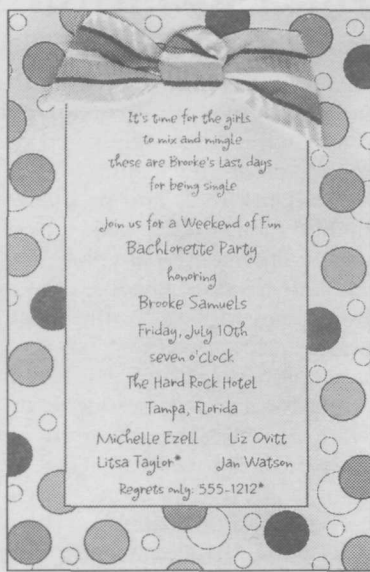 It's time for the girls
to mix and mingle
these are Brooke's last days
for being single
Join us for a Weekend of Fun
Bachlorette Party
honoring
Brooke Samuels
Friday, July 10th
seven o'clock
The Hard Rock Hotel
Tampa, Florida
Michelle Ezell Liz Ovitt
Litsa Taylor* Jan Watson
Regrets only: 555-1212*